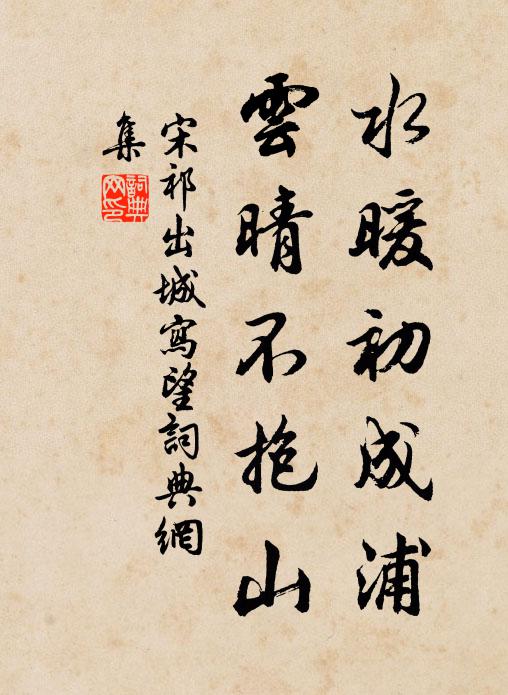 水暖初成浦
雲晴不抱山
宋祁出城寫望詞典網
集
詞典
网印